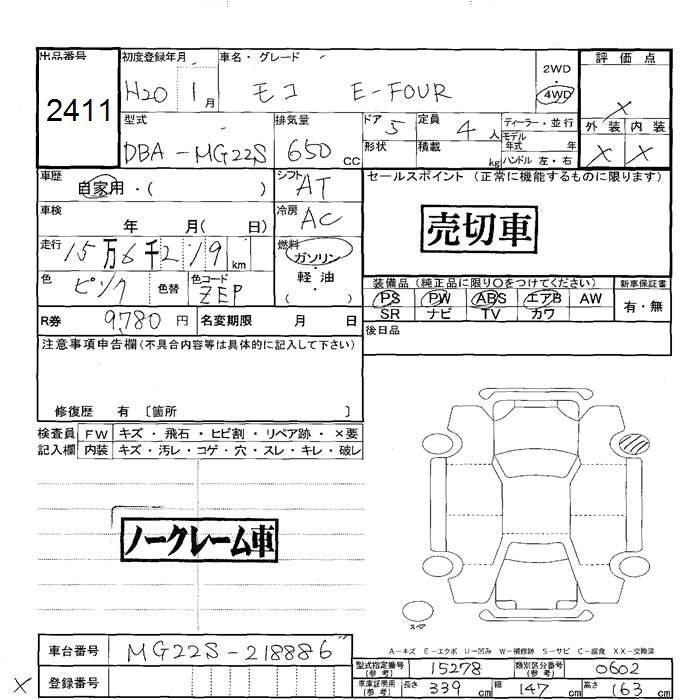 出品番号
2411
初度登録年月 車名・グレード
H20 1月 モコ E-FOUR
2WD
4WD
評価点
×
外装 内装
× ×
型式 排気量 ドア 定員
DBA-MG22S 650cc 5 4人
形状 積載 kg
ディーラー・並行
モデル年式 年
ハンドル 左・右
車歴 自家用・( )
シフト AT
車検 年 月( 日)
冷房 AC
走行 15万6千219km
燃料 ガソリン・軽油・( )
色 ピンク 色替 色コード ZEP
R券 9,780円 名変期限 月 日
セールスポイント (正常に機能するものに限ります)
売切車
装備品 (純正品に限り〇をつけてください) 新車保証書
PS PW ABS エアB AW 有・無
SR ナビ TV カワ
後日品
注意事項申告欄(不具合内容等は具体的に記入して下さい)
修復歴 有 〔箇所 〕
検査員 FW キズ・飛石・ヒビ割・リペア跡・×要
記入欄 内装 キズ・汚レ・コゲ・穴・スレ・キレ・破レ
ノークレーム車
スペア
A-キズ E-エクボ U-凹み W-補修跡 S-サビ C-腐食 XX-交換済
車台番号 MG22S-218886
× 登録番号
型式指定番号(参考) 15278 類別区分番号(参考) 0602
車庫証明用(参考) 長さ 339cm 幅 147cm 高さ 163cm